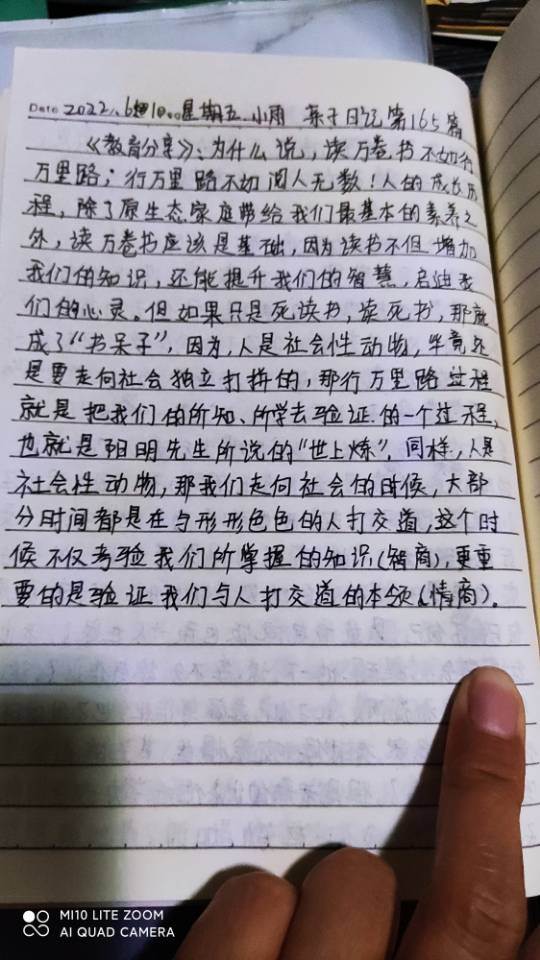 Date 2022.6.10.星期五.小雨 亲子日记第165篇
《教育分享》:为什么说,读万卷书不如行
万里路;行万里路不如阅人无数!人的成长历
程,除了原生态家庭带给我们最基本的素养之
外,读万卷书应该是基础,因为读书不但增加
我们的知识,还能提升我们的智慧,启迪我
们的心灵。但如果只是死读书,读死书,那就
成了“书呆子”,因为,人是社会性动物,毕竟还
是要走向社会独立打拼的,那行万里路过程
就是把我们的所知、所学去验证的一个过程,
也就是阳明先生所说的“世上炼”。同样,人是
社会性动物,那我们走向社会的时候,大部
分时间都是在与形形色色的人打交道,这个时
候不仅考验我们所掌握的知识(智商),更重
要的是验证我们与人打交道的本领(情商)。
MI10 LITE ZOOM
AI QUAD CAMERA